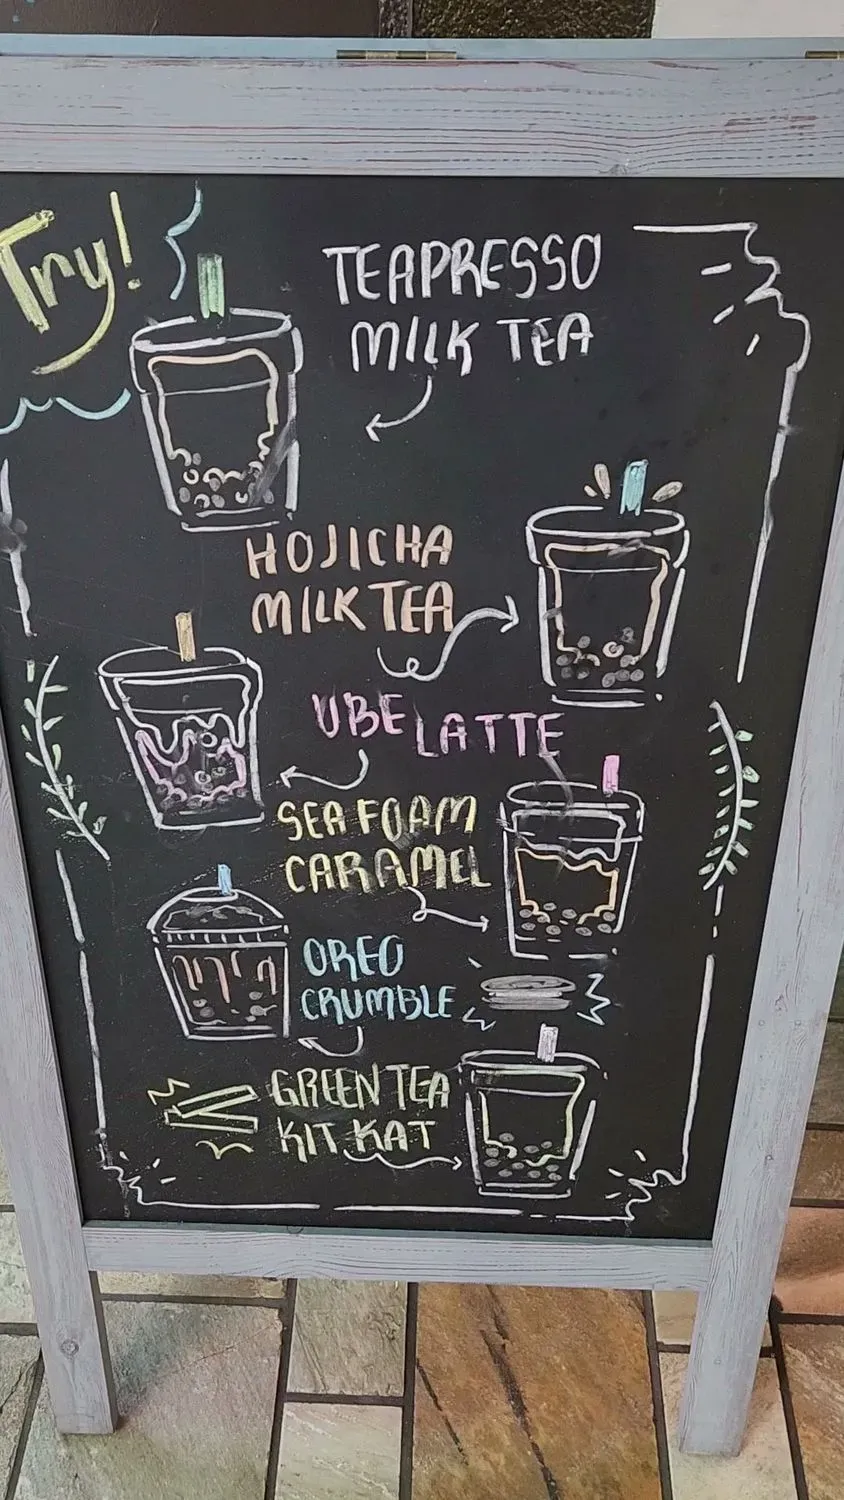 Try!
TEAPRESSO
MILK TEA
HOJICHA
MILK TEA
UBE LATTE
SEA FOAM
CARAMEL
OREO
CRUMBLE
GREEN TEA
KIT KAT